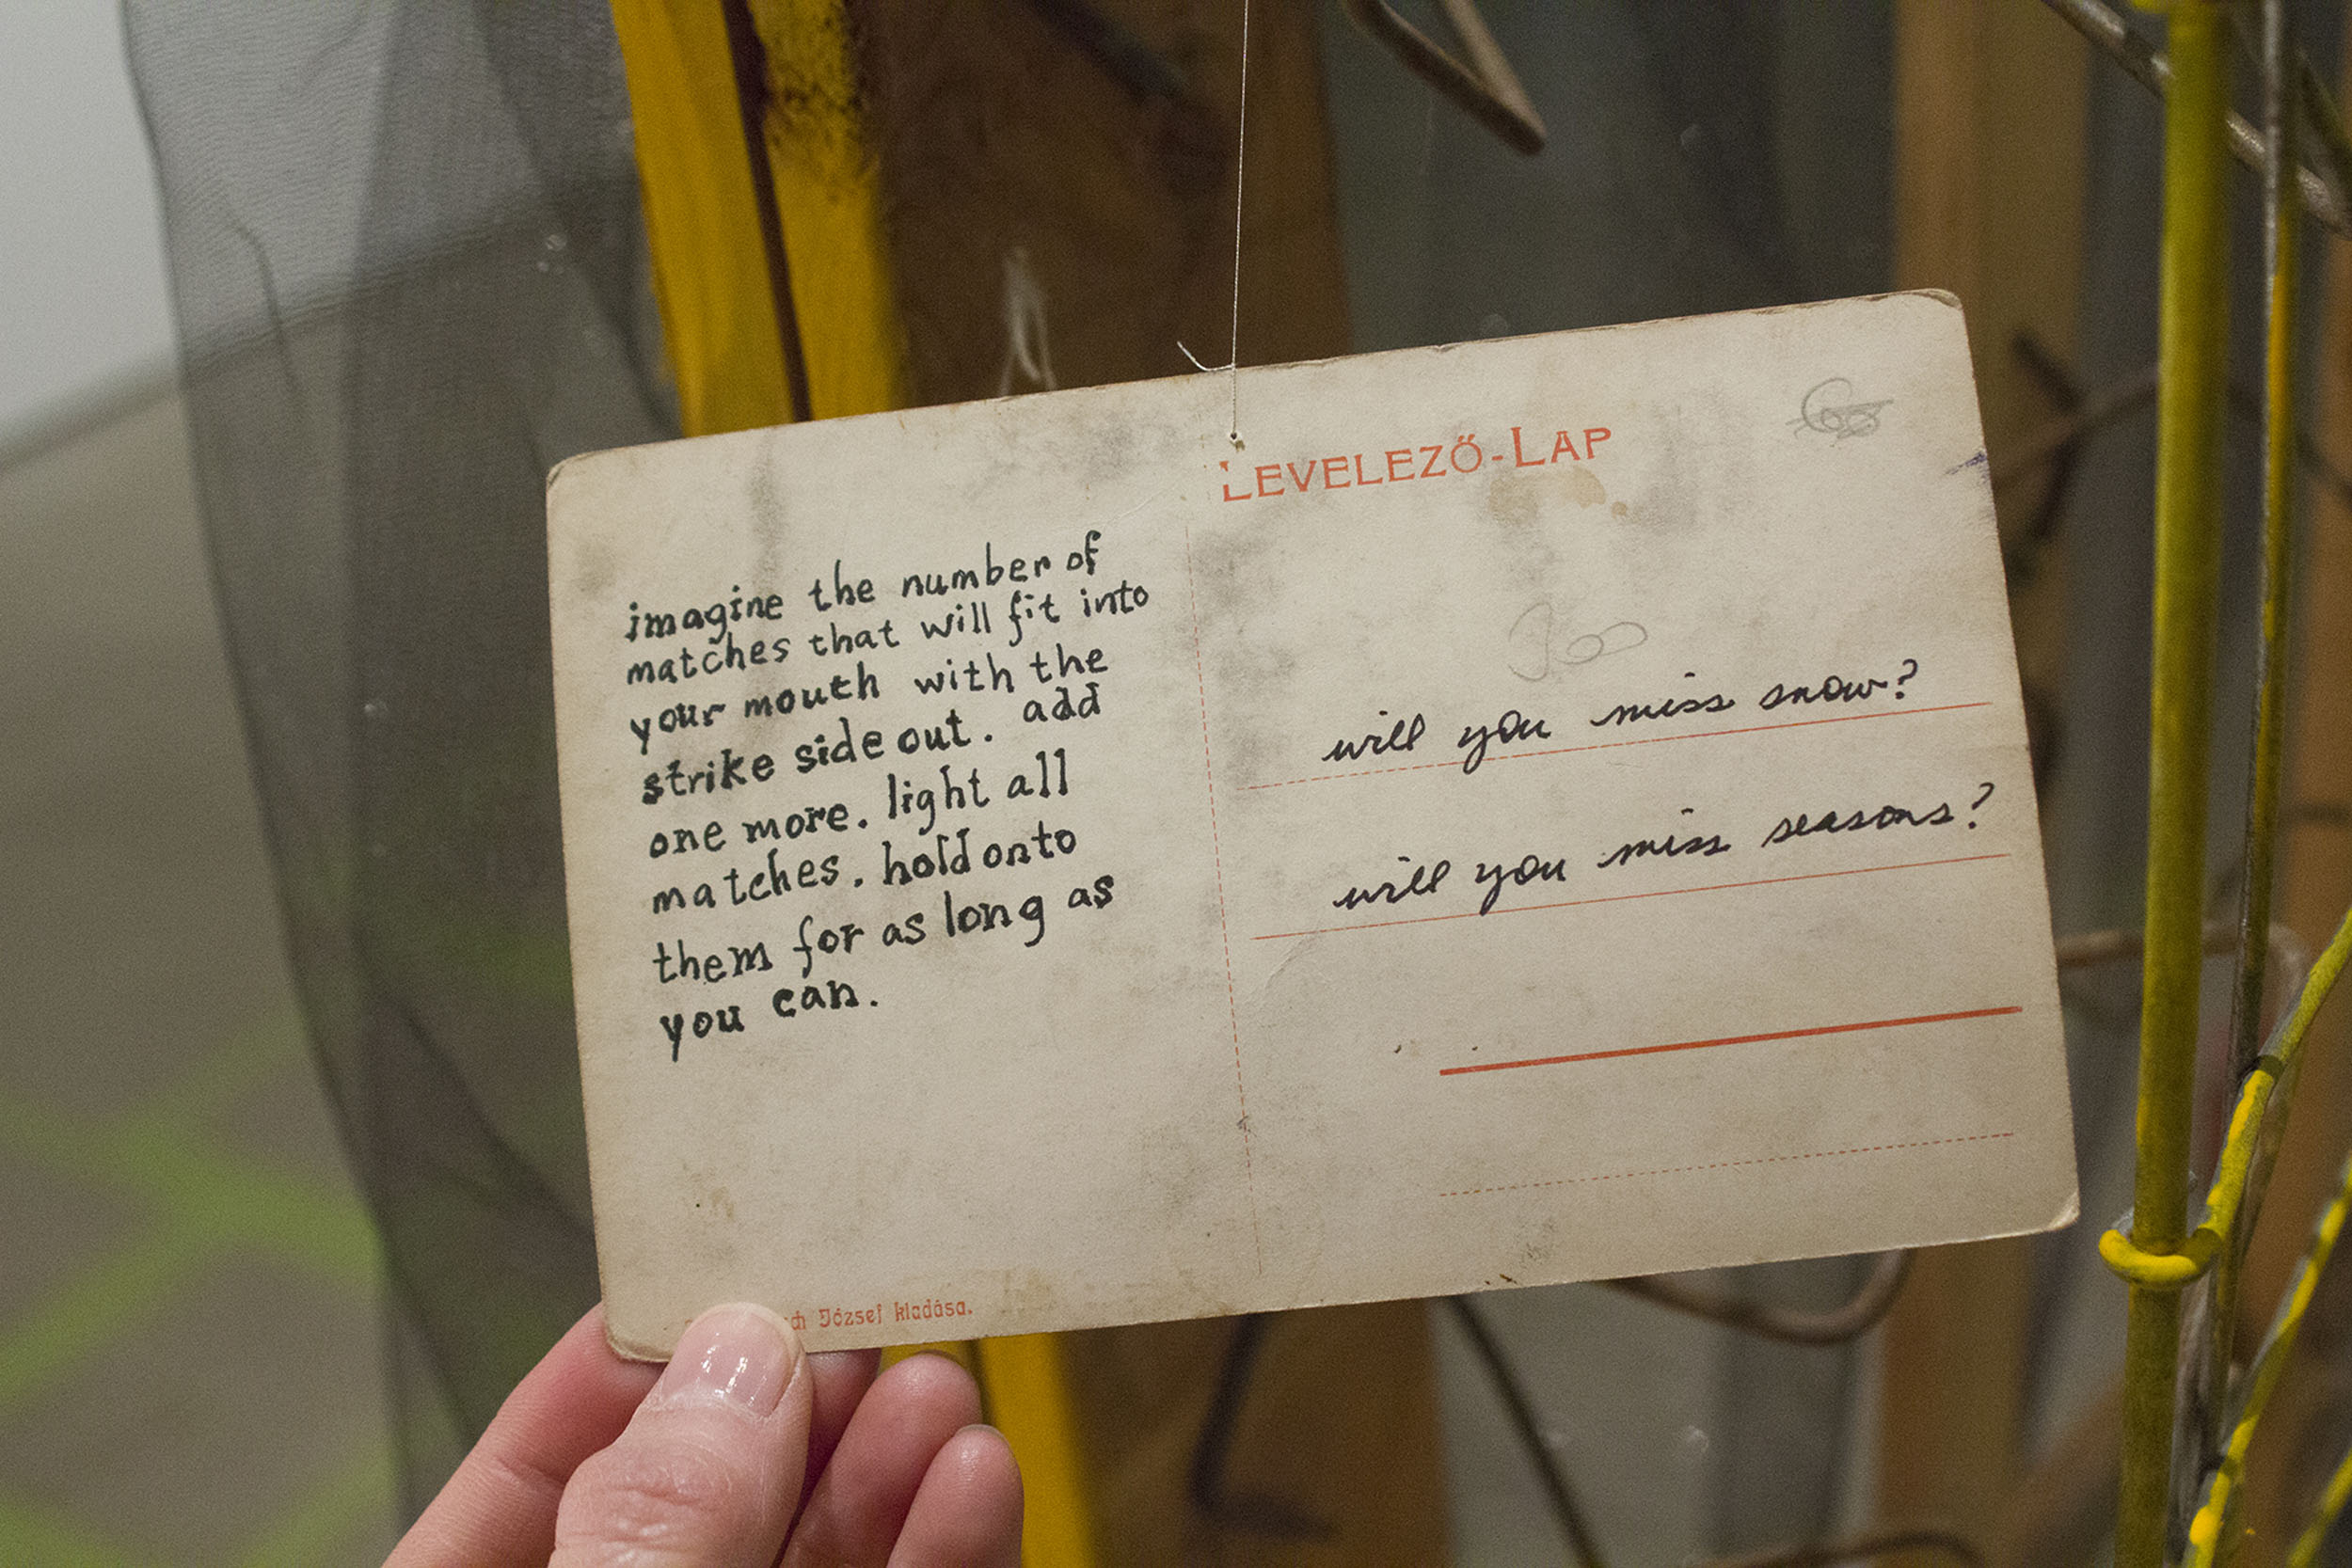 LEVELEZŐ-LAP
imagine the number of
matches that will fit into
your mouth with the
strike side out. add
one more. light all
matches. hold onto
them for as long as
you can.
will you miss snow?
will you miss seasons?
József kiadása.